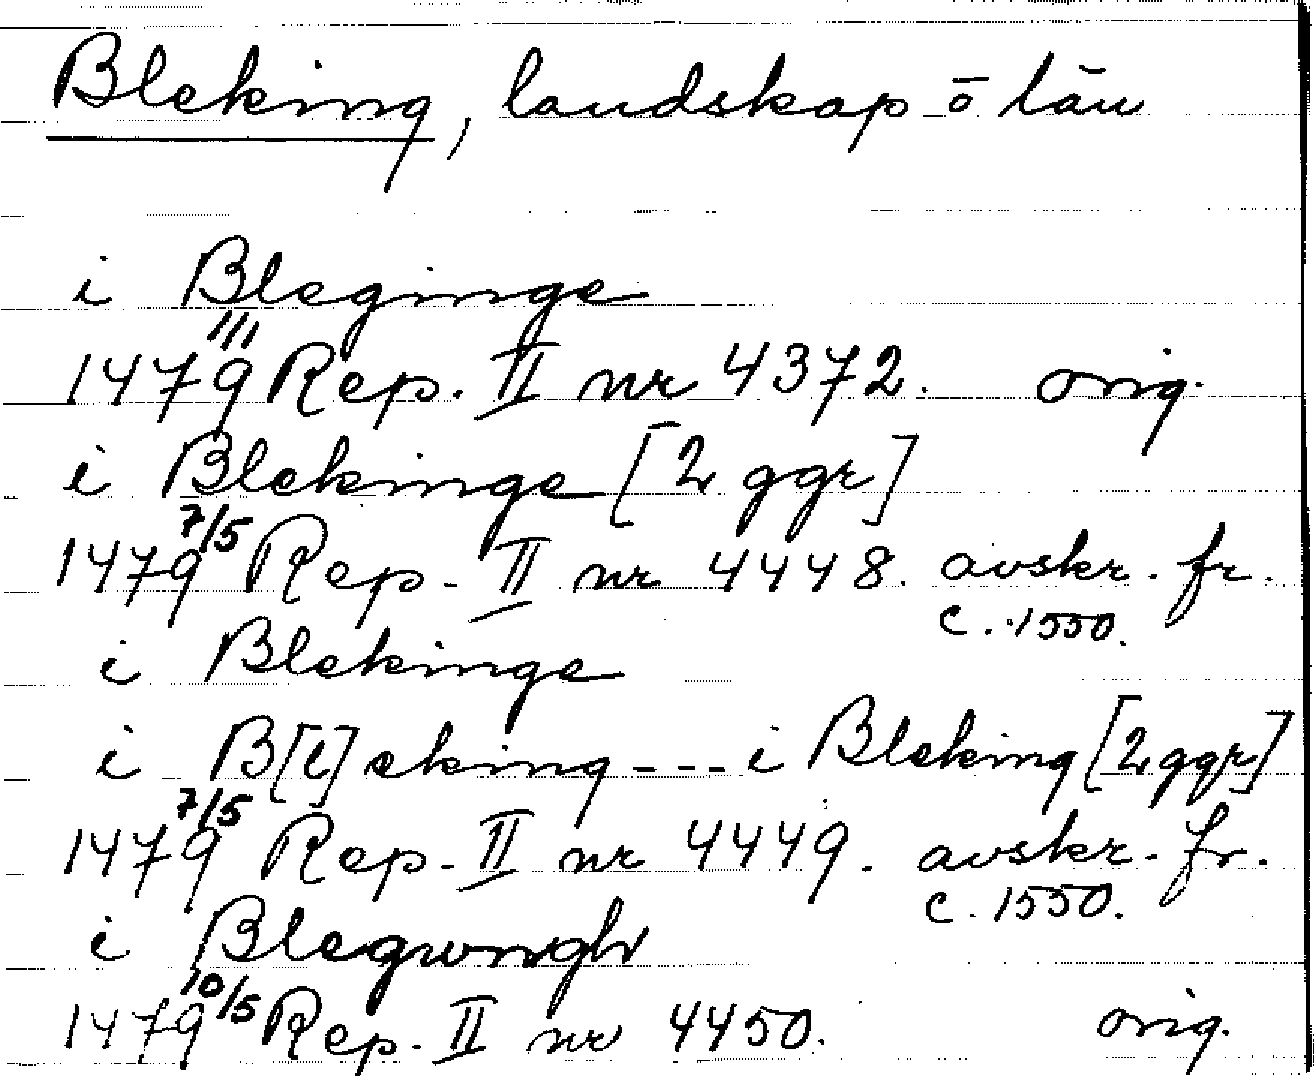 Bleking, landskap ō län
i Bleginge
1479 1/1 Rep. II nr 4372. orig.
i Blekinge [2 ggr]
1479 7/5 Rep. II nr 4448. avskr. fr.
c. 1550.
i Blekinge
i B[l]eking --- i Bleking [2 ggr]
1479 7/5 Rep. II nr 4449. avskr. fr.
c. 1550.
i
1479 10/5 Rep. II nr 4450. orig.